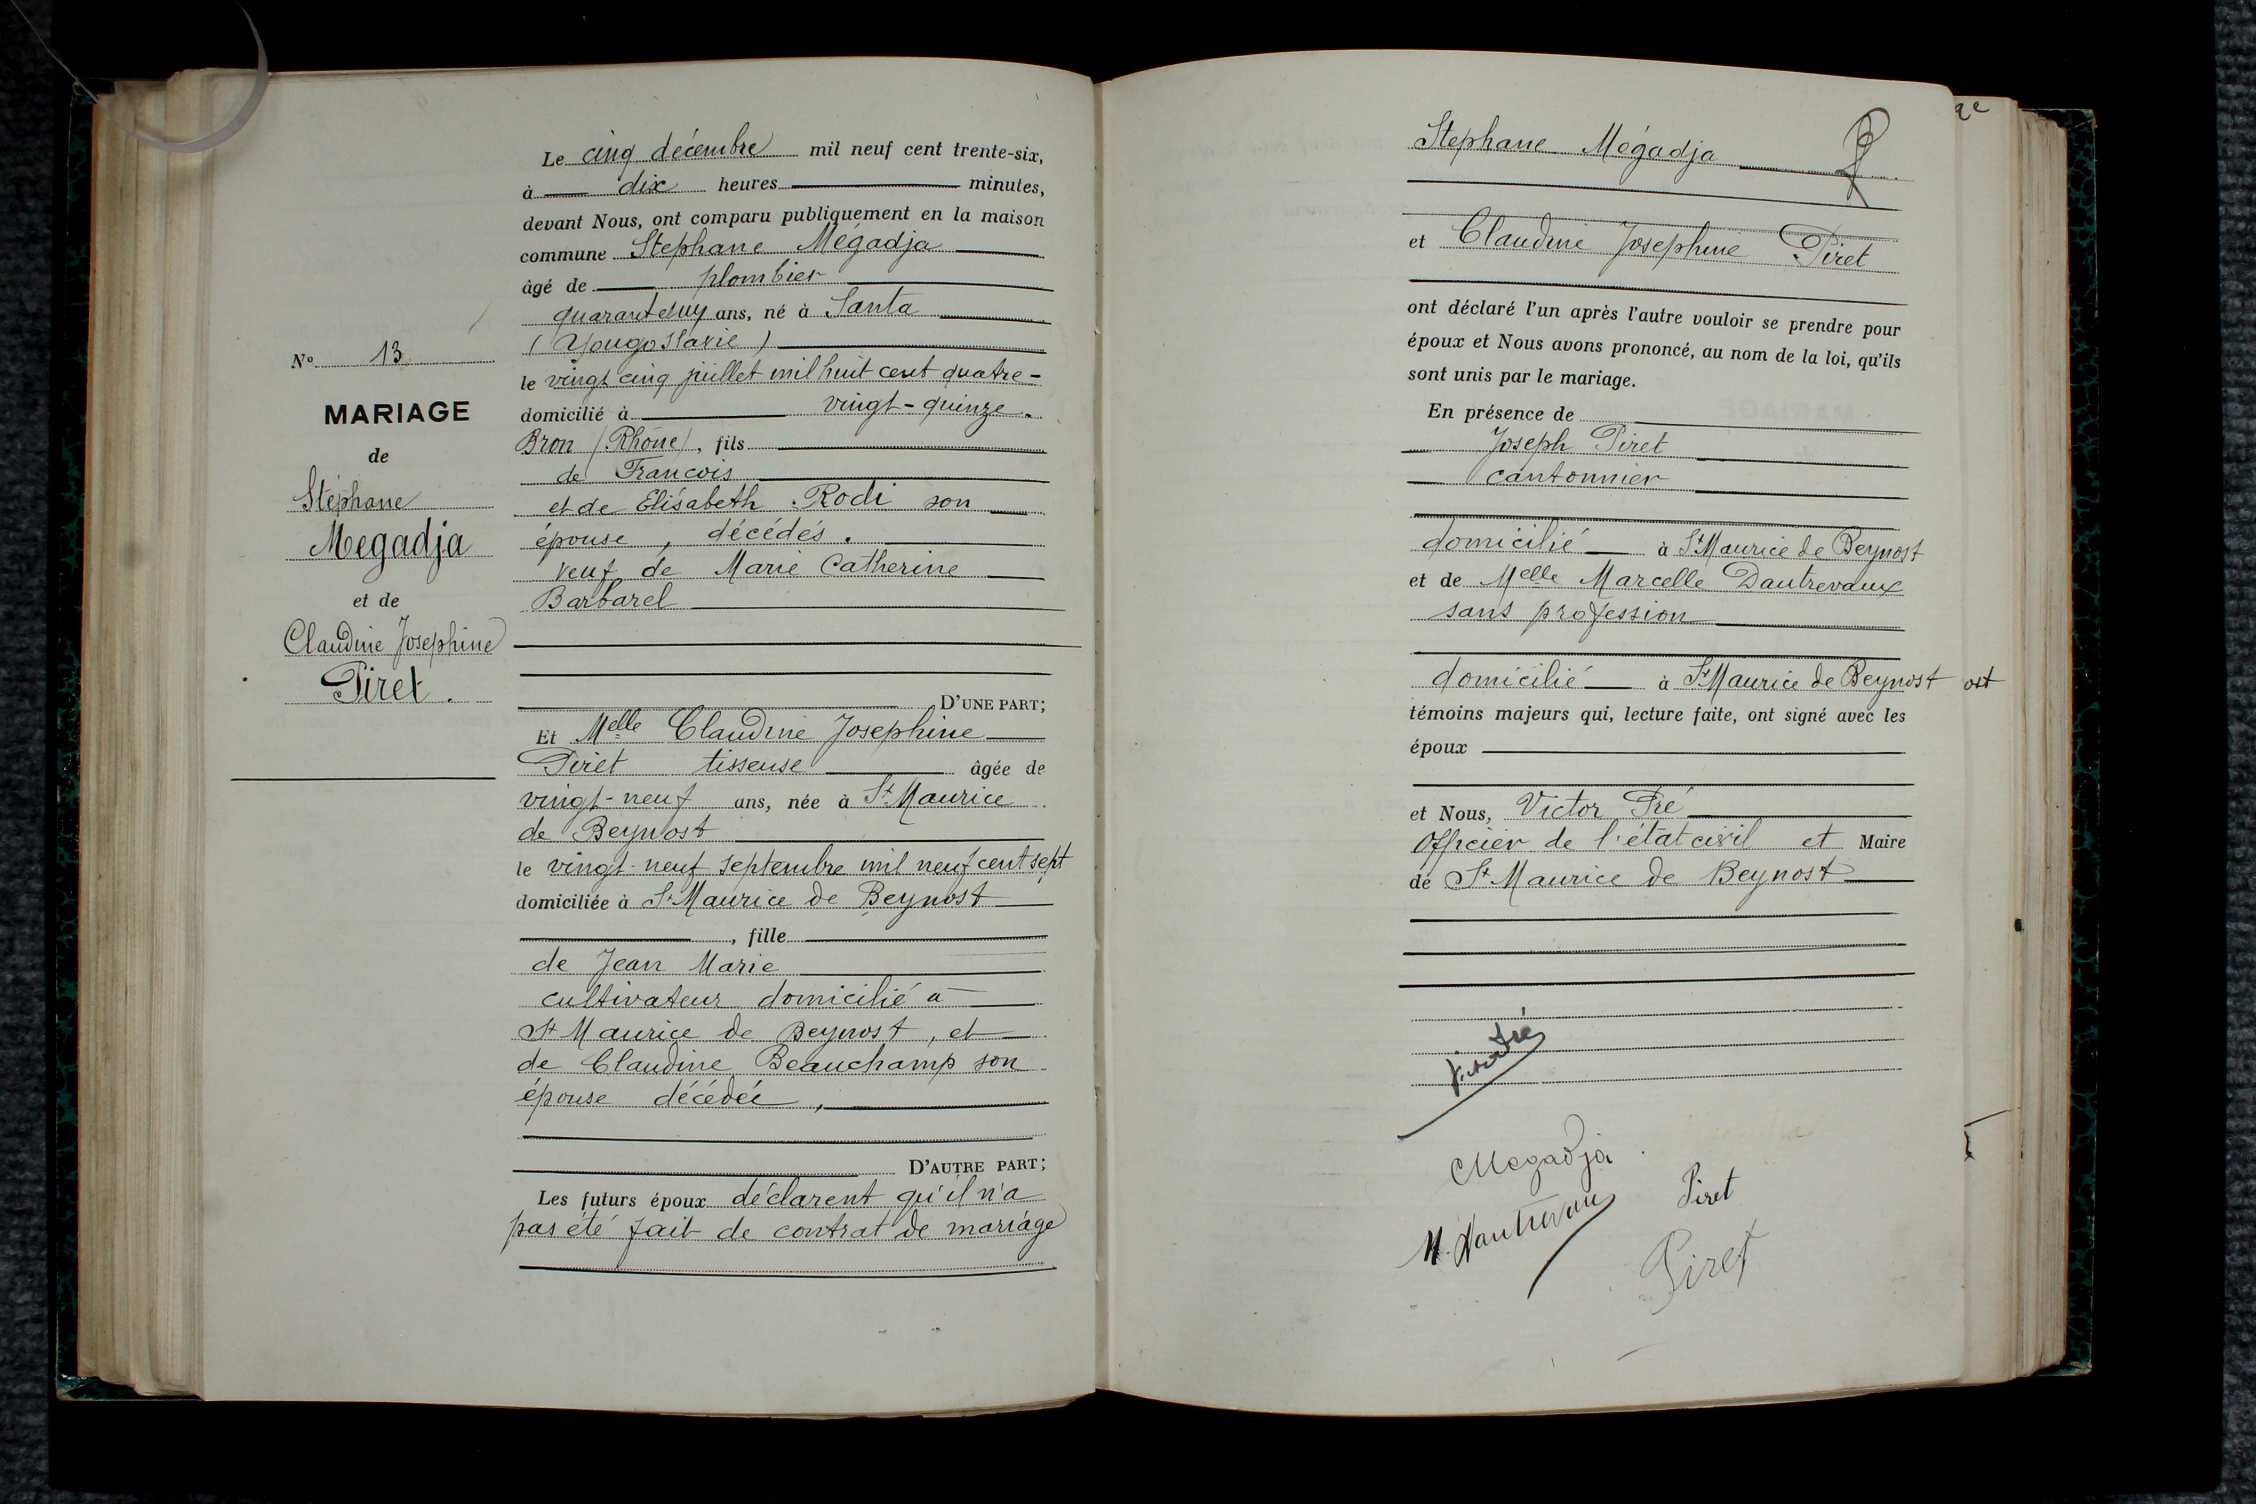 N° 13
MARIAGE
de
Stéphane
Megadja
et de
Claudine Josephine
Piret.
Le cinq décembre mil neuf cent trente-six,
à dix heures minutes,
devant Nous, ont comparu publiquement en la maison
commune Stephane Mégadja
âgé de plombier
ans, né à Santa
(Yougoslavie)
le vingt cinq juillet mil huit cent quatre-
domicilié à vingt-quinze.
Bron (Rhône), fils
de Francois
et de Elisabeth Rodi son
épouse, décédés.
veuf de Marie Catherine
Barbarel
D'UNE PART;
Et Melle Claudine Josephine
Piret tisseuse âgée de
vingt-neuf ans, née à St Maurice
de Beynost
le vingt-neuf septembre mil neuf cent sept
domiciliée à St Maurice de Beynost
, fille
de Jean Marie
cultivateur domicilié à
St Maurice de Beynost, et
de Claudine Beauchamp son
épouse décédée,
D'AUTRE PART;
Les futurs époux déclarent qu'il n'a
pas été fait de contrat de mariage
Stephane Mégadja
et Claudine Josephine Piret
ont déclaré l'un après l'autre vouloir se prendre pour
époux et Nous avons prononcé, au nom de la loi, qu'ils
sont unis par le mariage.
En présence de
Joseph Piret
cantonnier
domicilié à St Maurice de Beynost
et de Melle Marcelle Dautrevaux
sans profession
domicilié à St Maurice de Beynost
témoins majeurs qui, lecture faite, ont signé avec les
époux
et Nous, Victor Pré
Officier de l'état civil et Maire
de St Maurice de Beynost
Megadja
Piret
M. Dautrevaux
Piret